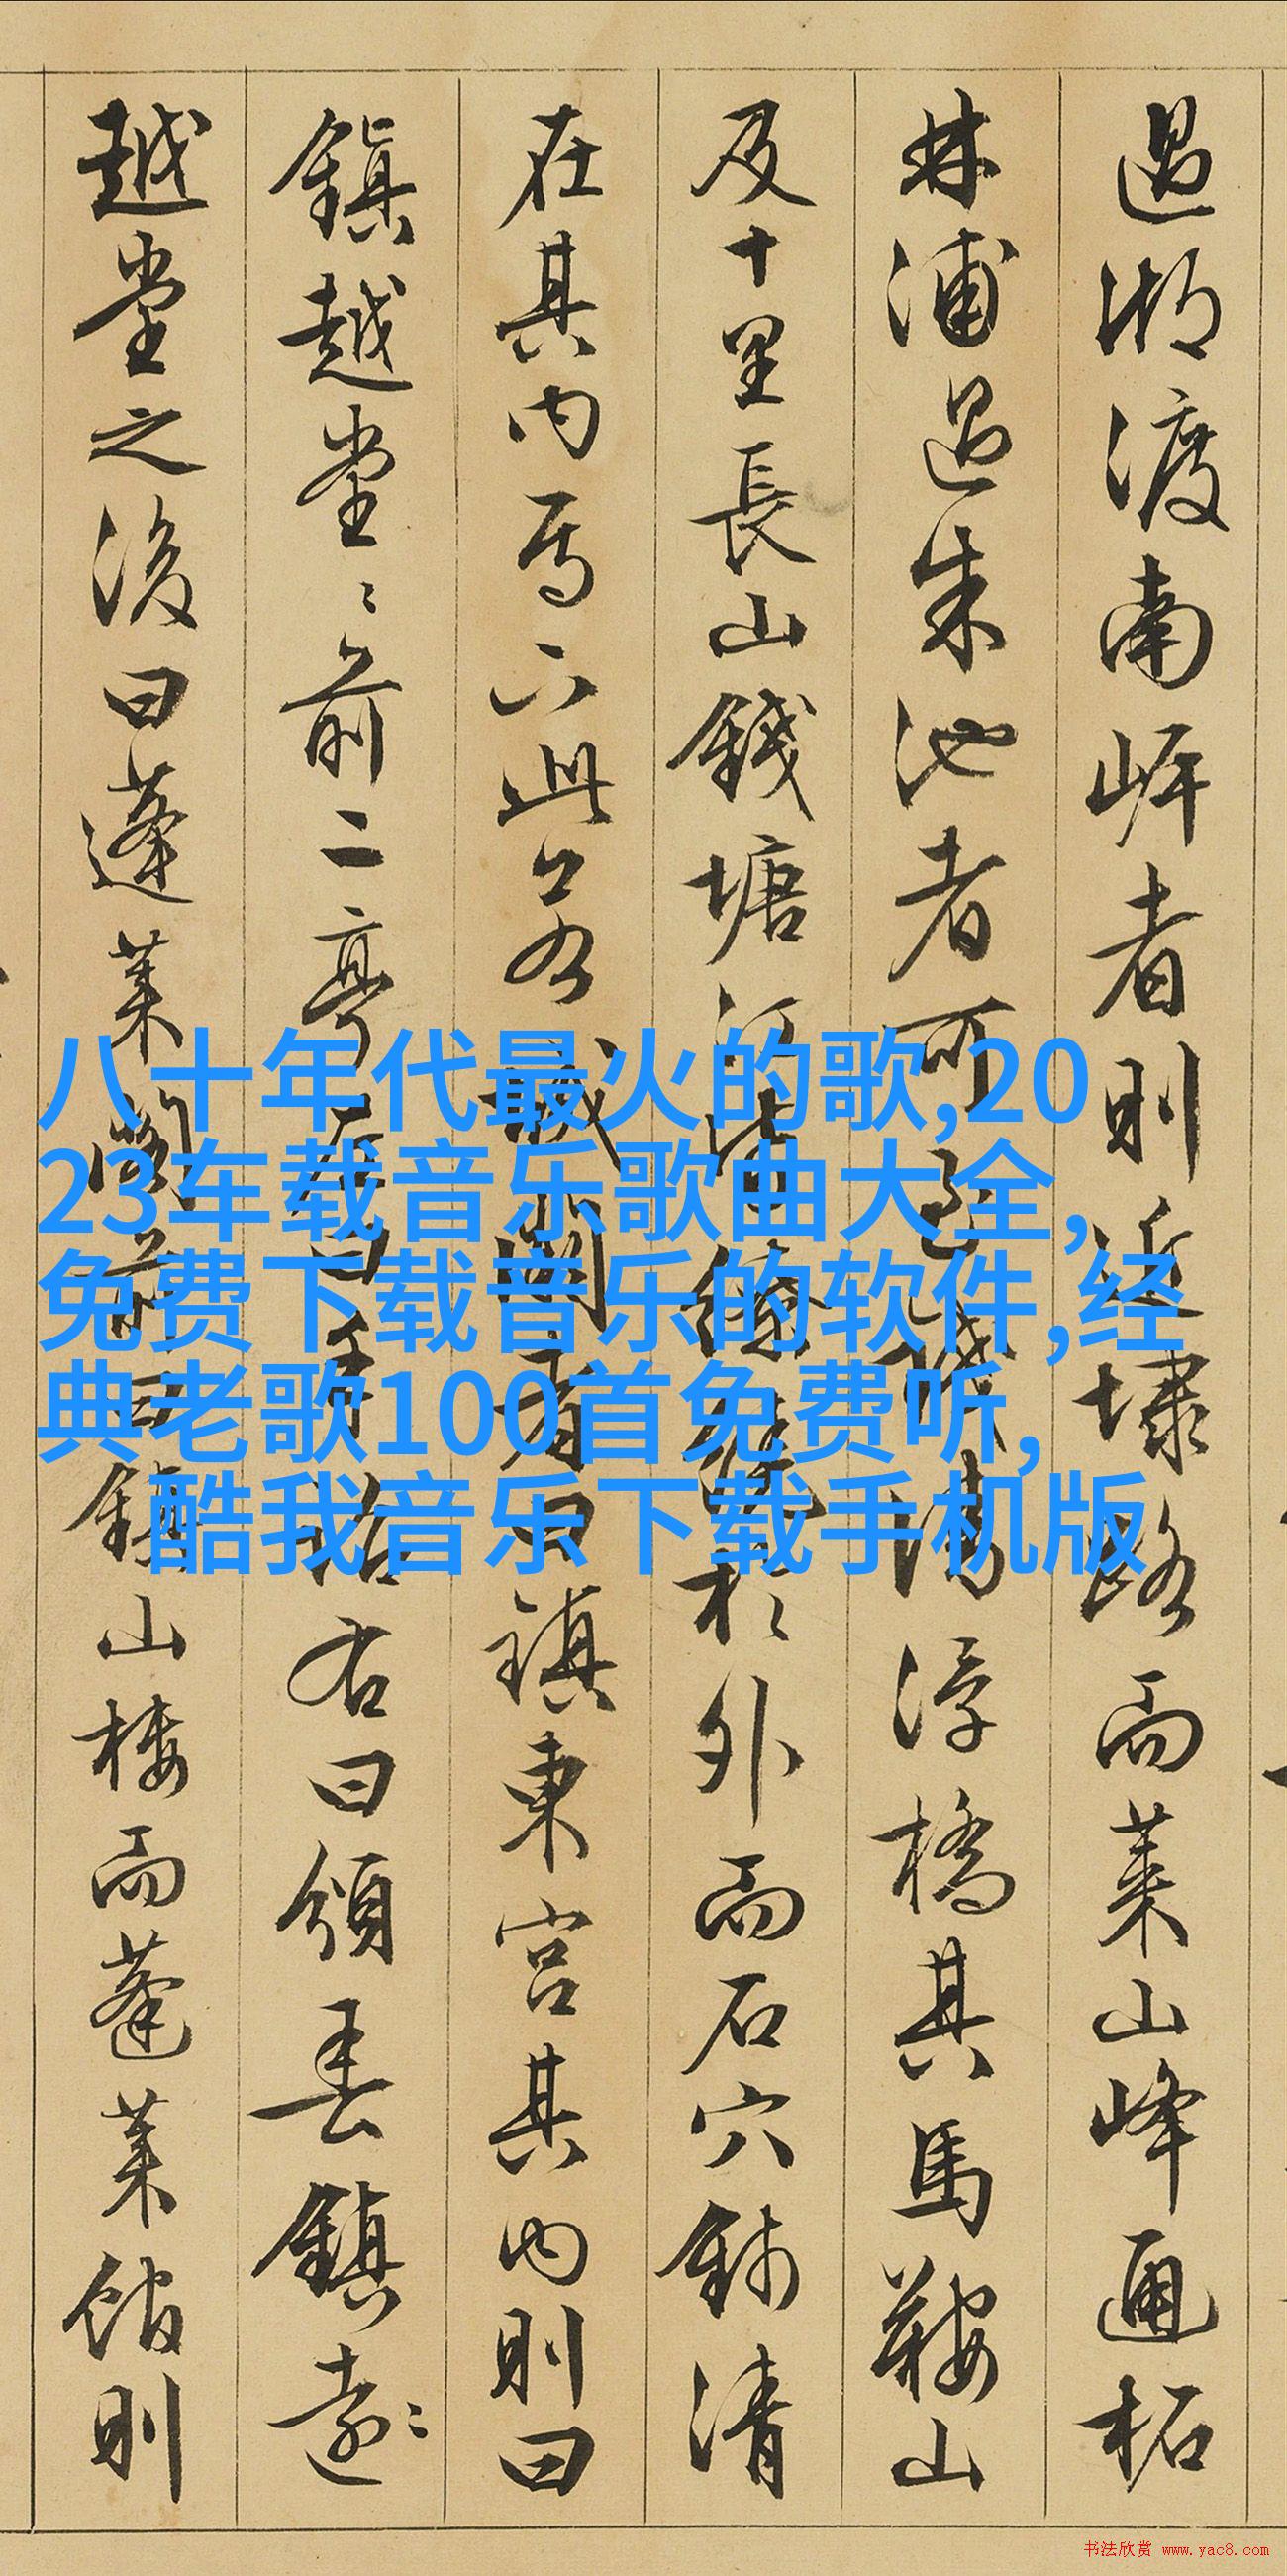 過湖渡南岸者則近埭路而萊山峰通柘
林浦過朱池者可
浮橋其馬鞍山
及十里長山錢塘
於外而石穴錦清
在其内焉六
鎮東宮其内則曰
鎮越堂〻前二亭
右曰領春鎮遠〻
越堂之後曰蓬萊
鎮山樓而蓬萊館則
八十年代最火的歌,20
23车载音乐歌曲大全,
免费下载音乐的软件,经
典老歌100首免费听,
酷我音乐下载手机版
书法欣赏 www.yac8.com